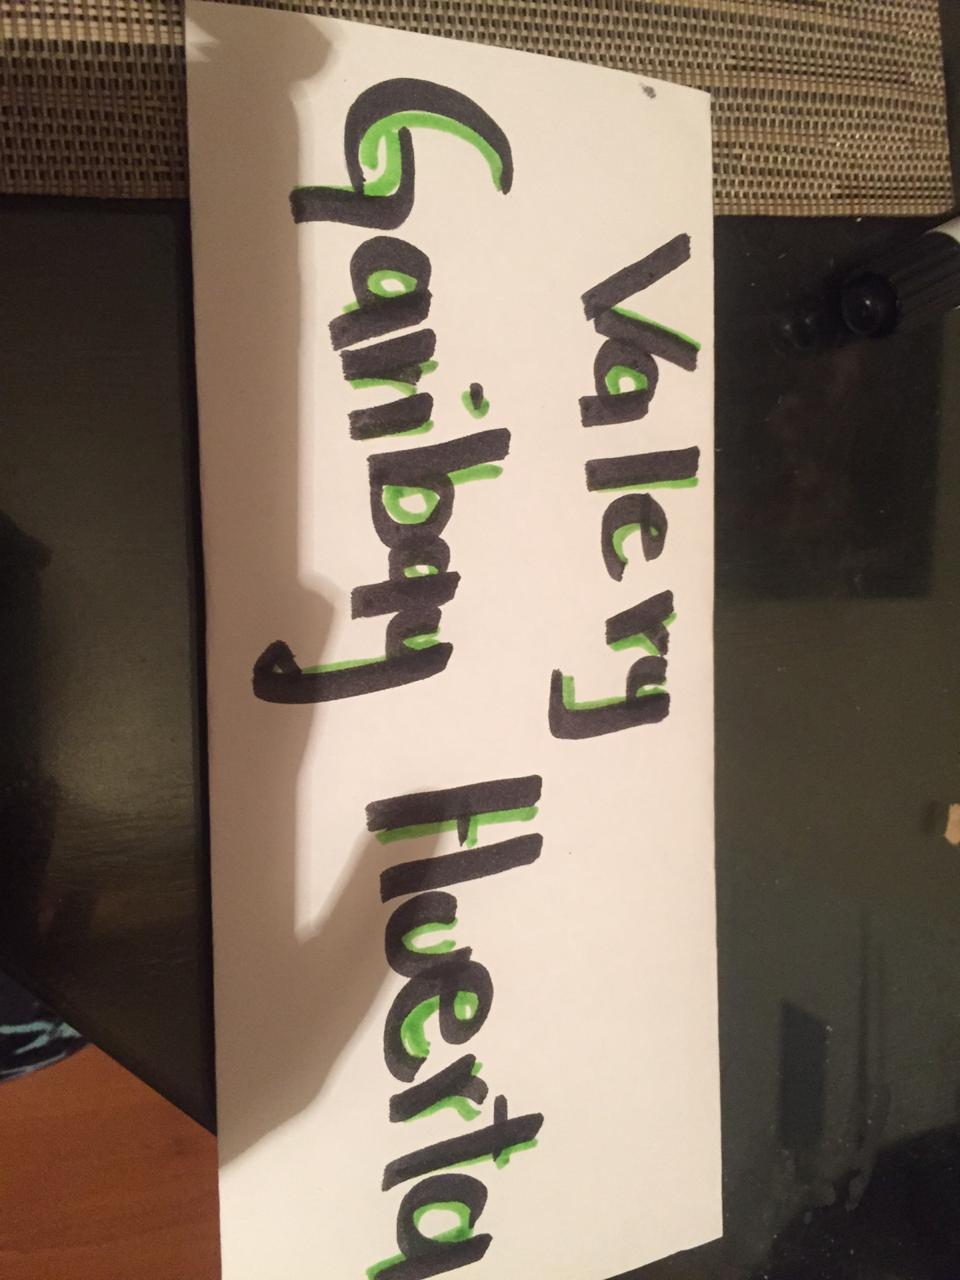 Valery
Garibay Huerta